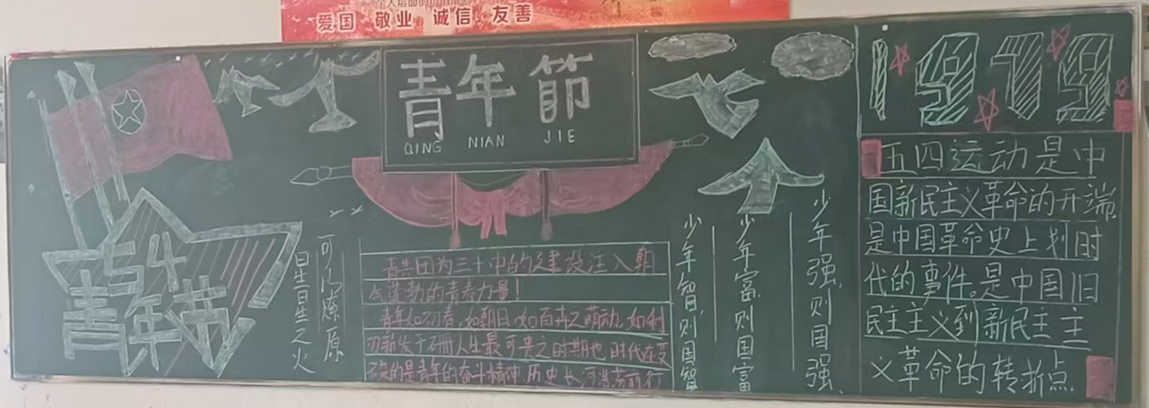 爱国 敬业 诚信 友善
青年節
QING NIAN JIE
54
青年节
星星之火
可以燎原
青年如初春,如朝日,如百卉之萌动,如利
刃新发于硎,人生最可贵之时期也,时代在变
不变的是青年的奋斗精神,历史长河浩荡前行
少年智则国智
少年富则国富
少年强则国强
1979
五四运动是中
国新民主义革命的开端
是中国革命史上划时
代的事件。是中国旧
民主主义到新民主主
义革命的转折点